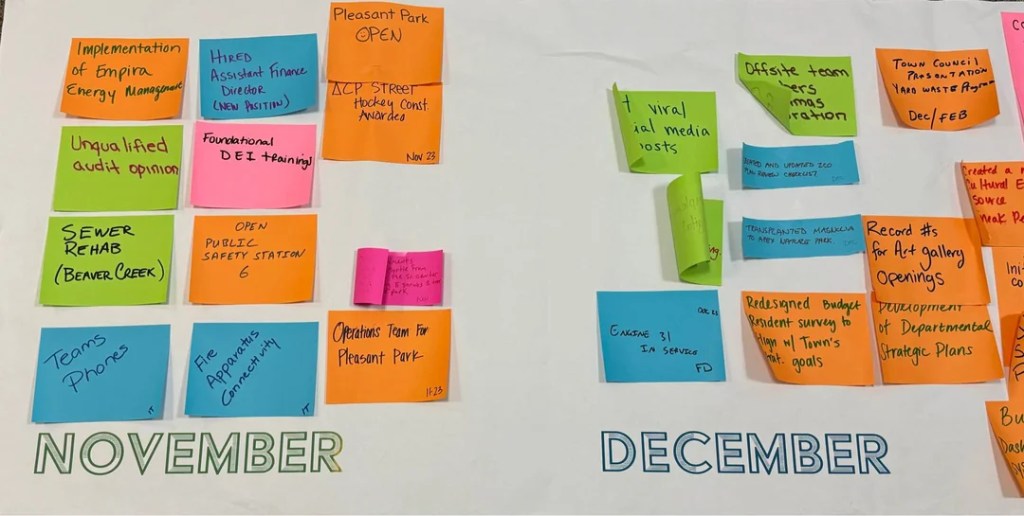 Implementation
of Empira
Energy Management
HIRED
Assistant Finance
Director
(NEW POSITION)
Pleasant Park
OPEN
ACP STREET
Hockey Const.
Awarded
Nov 23
Unqualified
audit opinion
Foundational
DEI trainings
SEWER
REHAB
(BEAVER CREEK)
OPEN
PUBLIC
SAFETY STATION
6
Teams
Phones
IT
Fire
Apparatus
Connectivity
IT
Operations Team For
Pleasant Park
11-23
NOVEMBER
t viral
ial media
osts
Offsite team
mas
ration
TOWN COUNCIL
PRESENTATION
YARD WASTE Program
Dec/FEB
AND UPDATED
REVIEW CHECKLIST
TRANSPLANTED MAGNOLIA
TO APEX NATURE PARK
Record #s
for Art gallery
Openings
Development
of Departmental
Strategic Plans
ENGINE 31
IN SERVICE
FD
Redesigned Budget
Resident survey to
align w/ Town's
goals
Created a
Cultural
source
Init
co
Bu
Dash
DECEMBER